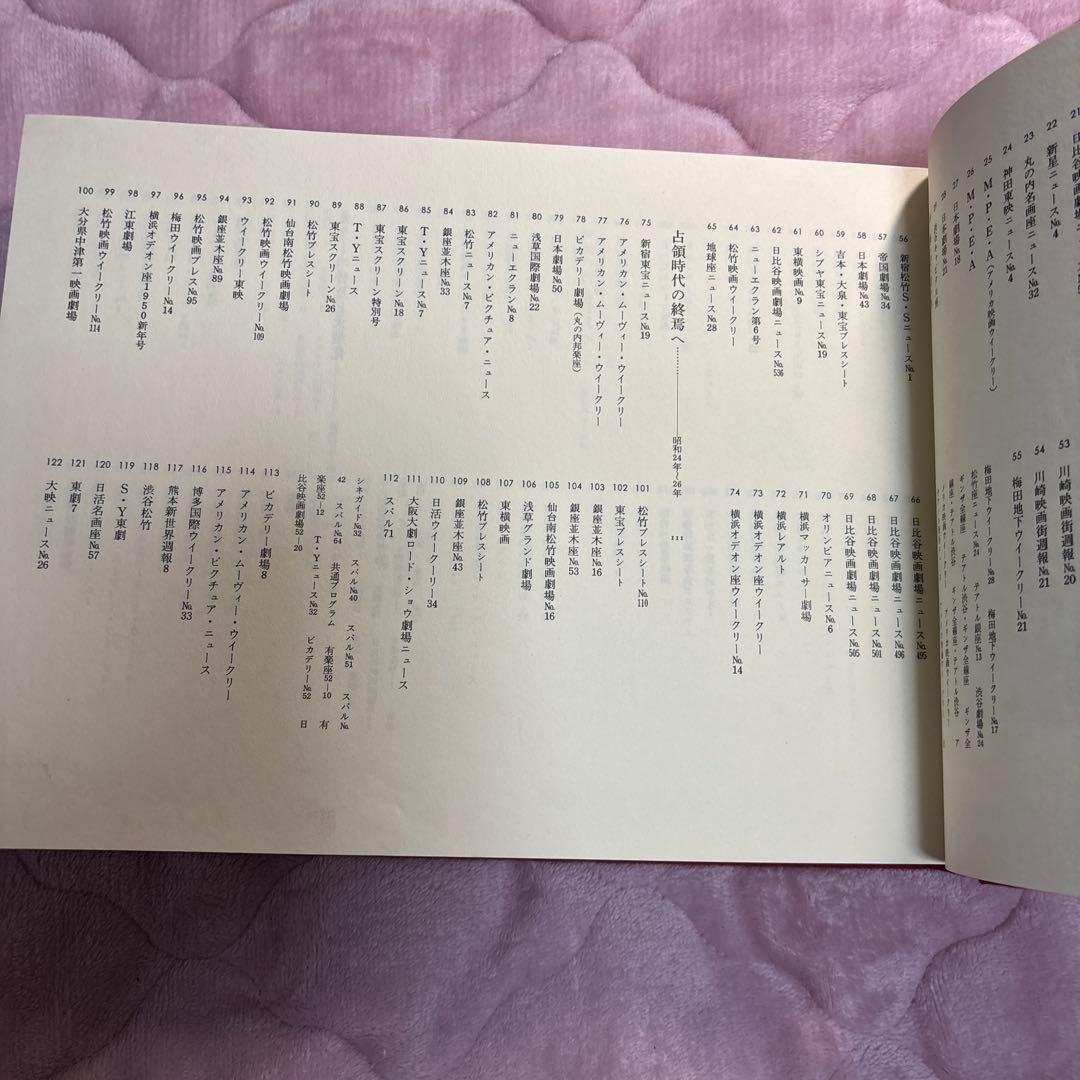 21 日比谷映画劇場
22 新星ニュース№4
23 丸の内名画座ニュース№32
24 神田東映ニュース№4
25 M・P・E・A(アメリカ映画ウイークリー)
26 M・P・E・A
27 日本劇場№19
28 日本劇場№21
53 川崎映画街週報№20
54 川崎映画街週報№21
55 梅田地下ウイークリー№21
梅田地下ウイークリー№28 梅田地下ウイークリー№17
松竹座ニュース№24 テアトル銀座№13 渋谷劇場№24
ギンザ全線座 テアトル渋谷・ギンザ全線座 ギンザ全
線座・テアトル渋谷 ギンザ全線座・テアトル渋谷 ア
56 新宿松竹S・Sニュース№1
57 帝国劇場№34
58 日本劇場№43
59 吉本・大泉・東宝プレスシート
60 シブヤ東宝ニュース№19
61 東横映画№9
62 日比谷映画劇場ニュース№536
63 ニューエクラン第6号
64 松竹映画ウイークリー
65 地球座ニュース№28
66 日比谷映画劇場ニュース№495
67 日比谷映画劇場ニュース№496
68 日比谷映画劇場ニュース№501
69 日比谷映画劇場ニュース№505
70 オリンピアニュース№6
71 横浜マッカーサー劇場
72 横浜レアルト
73 横浜オデオン座ウイークリー
74 横浜オデオン座ウイークリー№14
占領時代の終焉へ……………昭和24年〜26年 111
75 新宿東宝ニュース№19
76 アメリカン・ムーヴィー・ウイークリー
77 アメリカン・ムーヴィー・ウイークリー
78 ピカデリー劇場(丸の内邦楽座)
79 日本劇場№50
80 浅草国際劇場№22
81 ニューエクラン№8
82 アメリカン・ピクチュア・ニュース
83 松竹ニュース№7
84 銀座並木座№33
85 T・Yニュース№7
86 東宝スクリーン№18
87 東宝スクリーン特別号
88 T・Yニュース
89 東宝スクリーン№26
90 松竹プレスシート
91 仙台南松竹映画劇場
92 松竹映画ウイークリー№109
93 ウイークリー東映
94 銀座並木座№89
95 松竹映画プレス№95
96 梅田ウイークリー№14
97 横浜オデオン座1950新年号
98 江東劇場
99 松竹映画ウイークリー№114
100 大分県中津第一映画劇場
101 松竹プレスシート№110
102 東宝プレスシート
103 銀座並木座№16
104 銀座並木座№53
105 仙台南松竹映画劇場№16
106 浅草グランド劇場
107 東横映画
108 松竹プレスシート
109 銀座並木座№43
110 日活ウイークーリー34
111 大阪大劇ロード・ショウ劇場ニュース
112 スバル71
シネガイド№32 スバル№40 スバル№51 スバル№
42 スバル№64 共通プログラム 有楽座52―10 有
楽座52―12 T・Yニュース№32 ピカデリー№52 日
比谷映画劇場52―20
113 ピカデリー劇場8
114 アメリカン・ムーヴィー・ウイークリー
115 アメリカン・ピクチュア・ニュース
116 博多国際ウイークリー№33
117 熊本新世界週報8
118 渋谷松竹
119 S・Y東劇
120 日活名画座№57
121 東劇7
122 大映ニュース№26